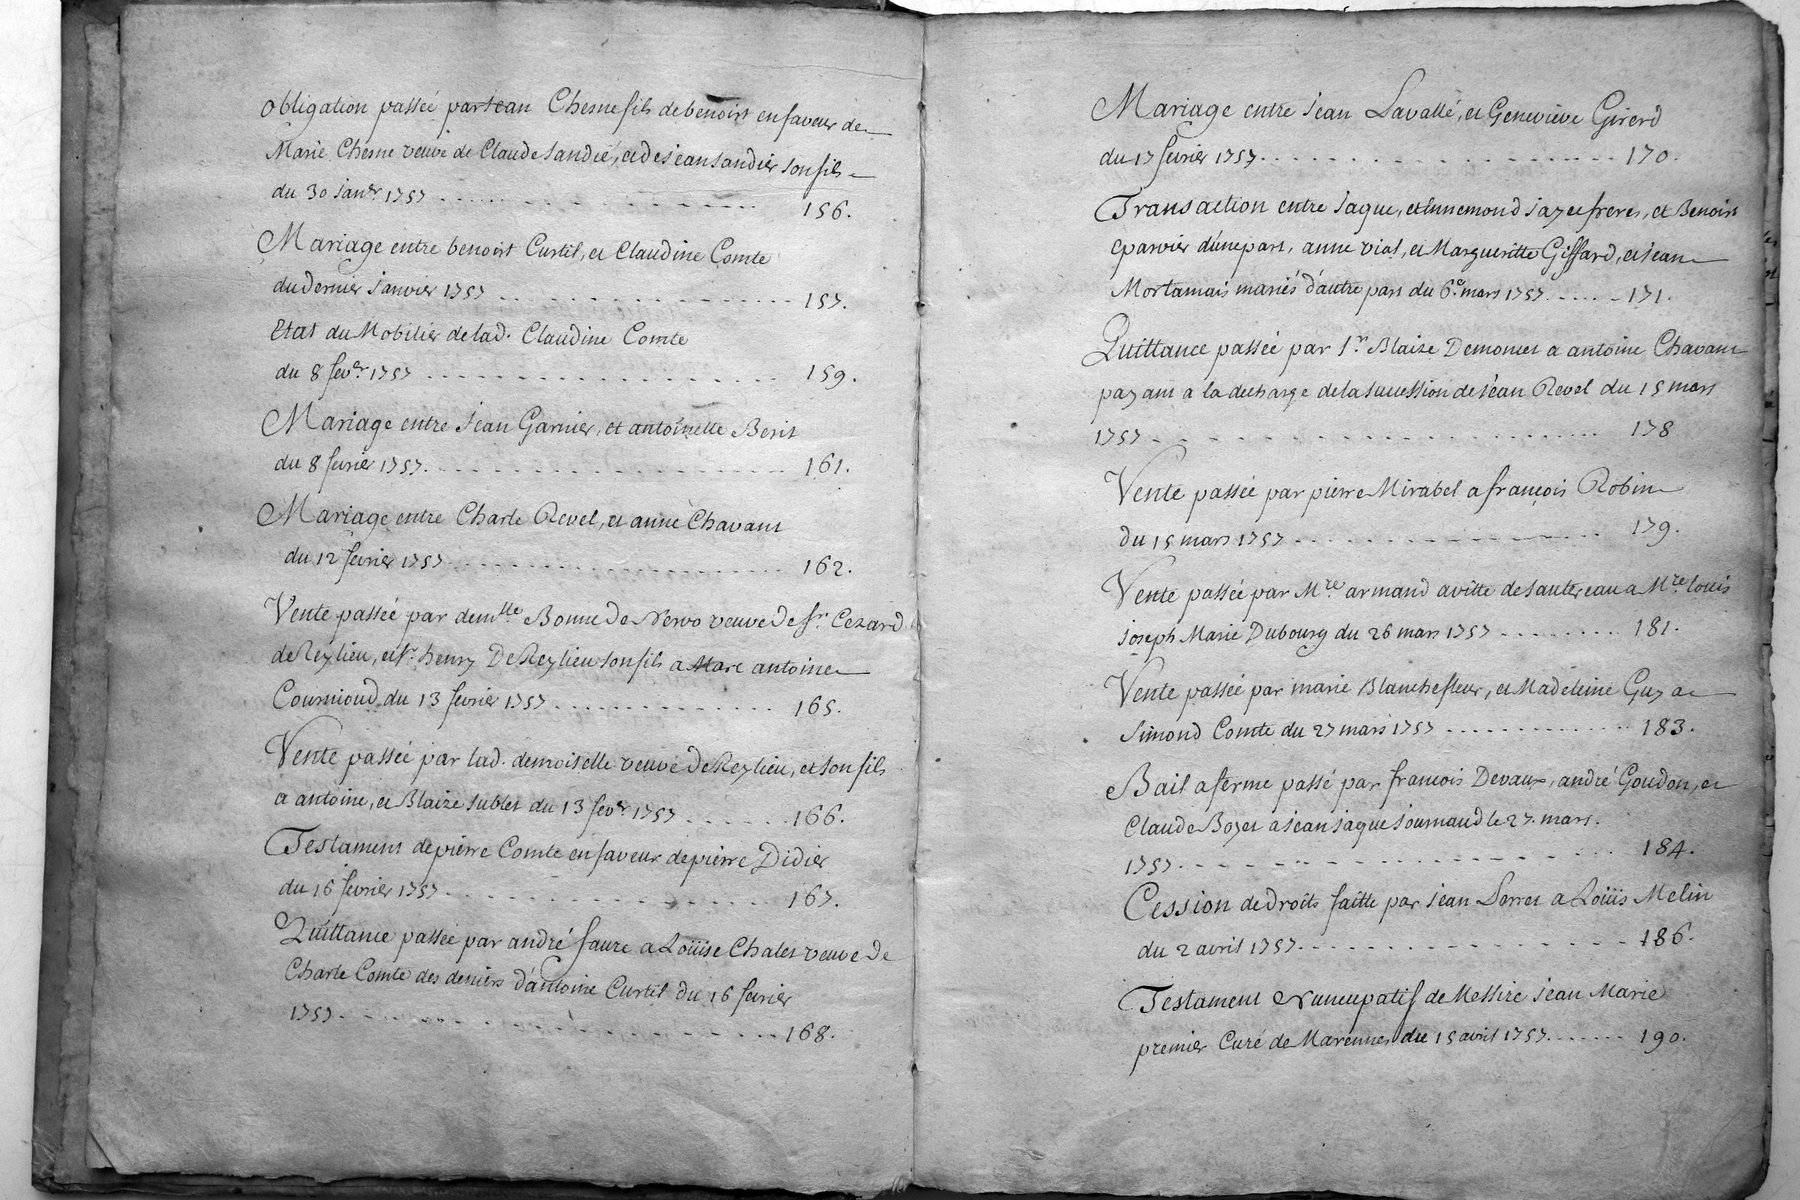 obligation passée par jean Chesne fils de benoist en faveur de
Marie Chesne veuve de Claude Sandié, et de jean Sandier son fils
du 30 janer 1757 156.
Mariage entre benoist Curtil, et Claudine Comte
du dernier janvier 1757 157.
Etat du Mobilier de lad. Claudine Comte
du 8 fever 1757 159.
Mariage entre jean Garnier, et antoinette Berit
du 8 fevrier 1757. 161.
Mariage entre Charle Revel, et anne Chavant
du 12 fevrier 1757 162.
Vente passée par demlle Bonne De Nervo veuve De sr. Cezard
de Reylieu, et sr. henry De Reylieu son fils a Marc antoine
Cournioud du 13 fevrier 1757 165.
Vente passée par lad. demoiselle veuve De Reylieu, et son fils
a antoine, et Blaize sublet du 13 fever 1757 166.
Testament de pierre Comte en faveur de pierre Didier
du 16 fevrier 1757 167.
Quittance passée par andré faure a Loüise Chalet veuve de
Charle Comte des deniers d'antoine Curtil du 16 fevrier
1757 168.
Mariage entre jean Lavallé, et Geneviève Girerd
du 17 fevrier 1757 170.
Transaction entre jaque, et ennemond jazet freres, et Benoist
eparvier d'une part, anne vial, et Margueritte Giffard, et jean
Mortamais mariés d'autre part du 6e. mars 1757 171.
Quittance passée par sr Blaize Demoncet a antoine Chavant
payant a la decharge de la succession de jean Revel du 15 mars
1757 178
Vente passée par pierre Mirabel a françois Robin
du 15 mars 1757 179.
Vente passée par Mre armand avitte de sautereau a Mre louis
joseph Marie Dubourg du 26 mars 1757 181.
Vente passée par marie Blanchefleur, et Madeleine Guy a
Simond Comte du 27 mars 1757 183.
Bail a ferme passé par françois Devaux, andré Goudon, et
Claude Boyet a jean jaque journaud le 27. mars.
1757 184.
Cession de droits faitte par jean Serret a Loüis Melin
du 2 avril 1757 186.
Testament Nuncupatif de Messire jean Marie
premier Curé de Marennes du 15 avril 1757 190.